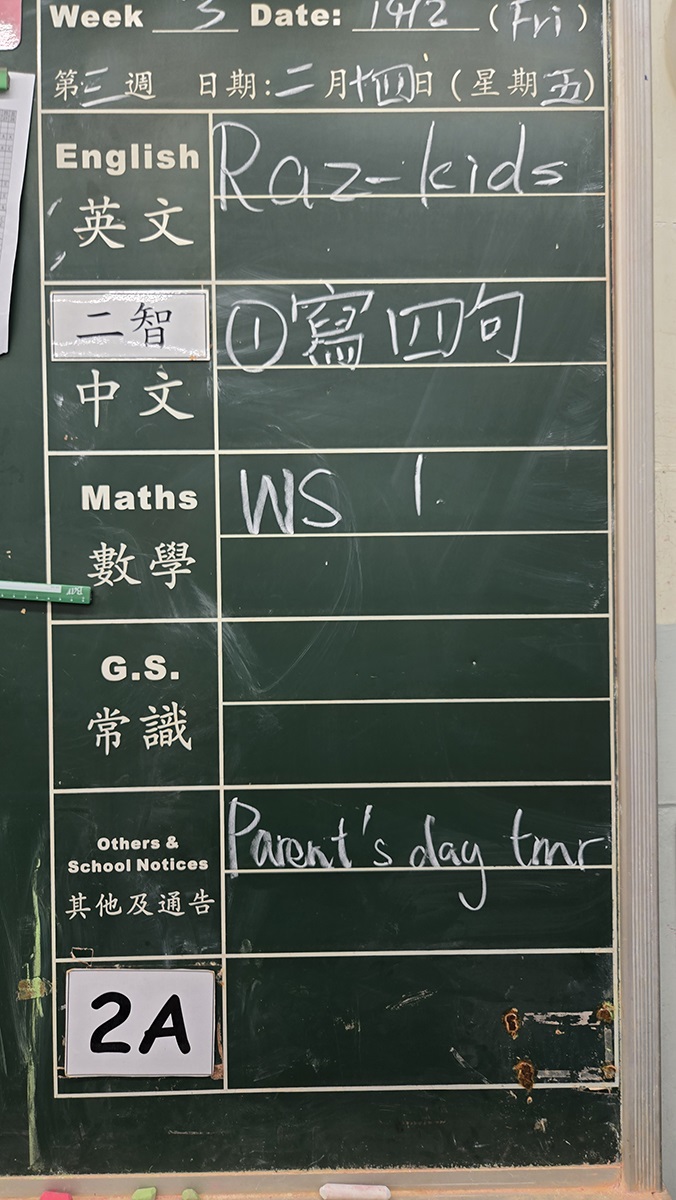 Week 3 Date: 14/2 (Fri)
第三週 日期:二月十四日(星期五)
English Raz-kids
英文
二智 ①寫四句
中文
Maths WS 1.
數學
G.S.
常識
Others &
School Notices Parent's day tmr
其他及通告
2A